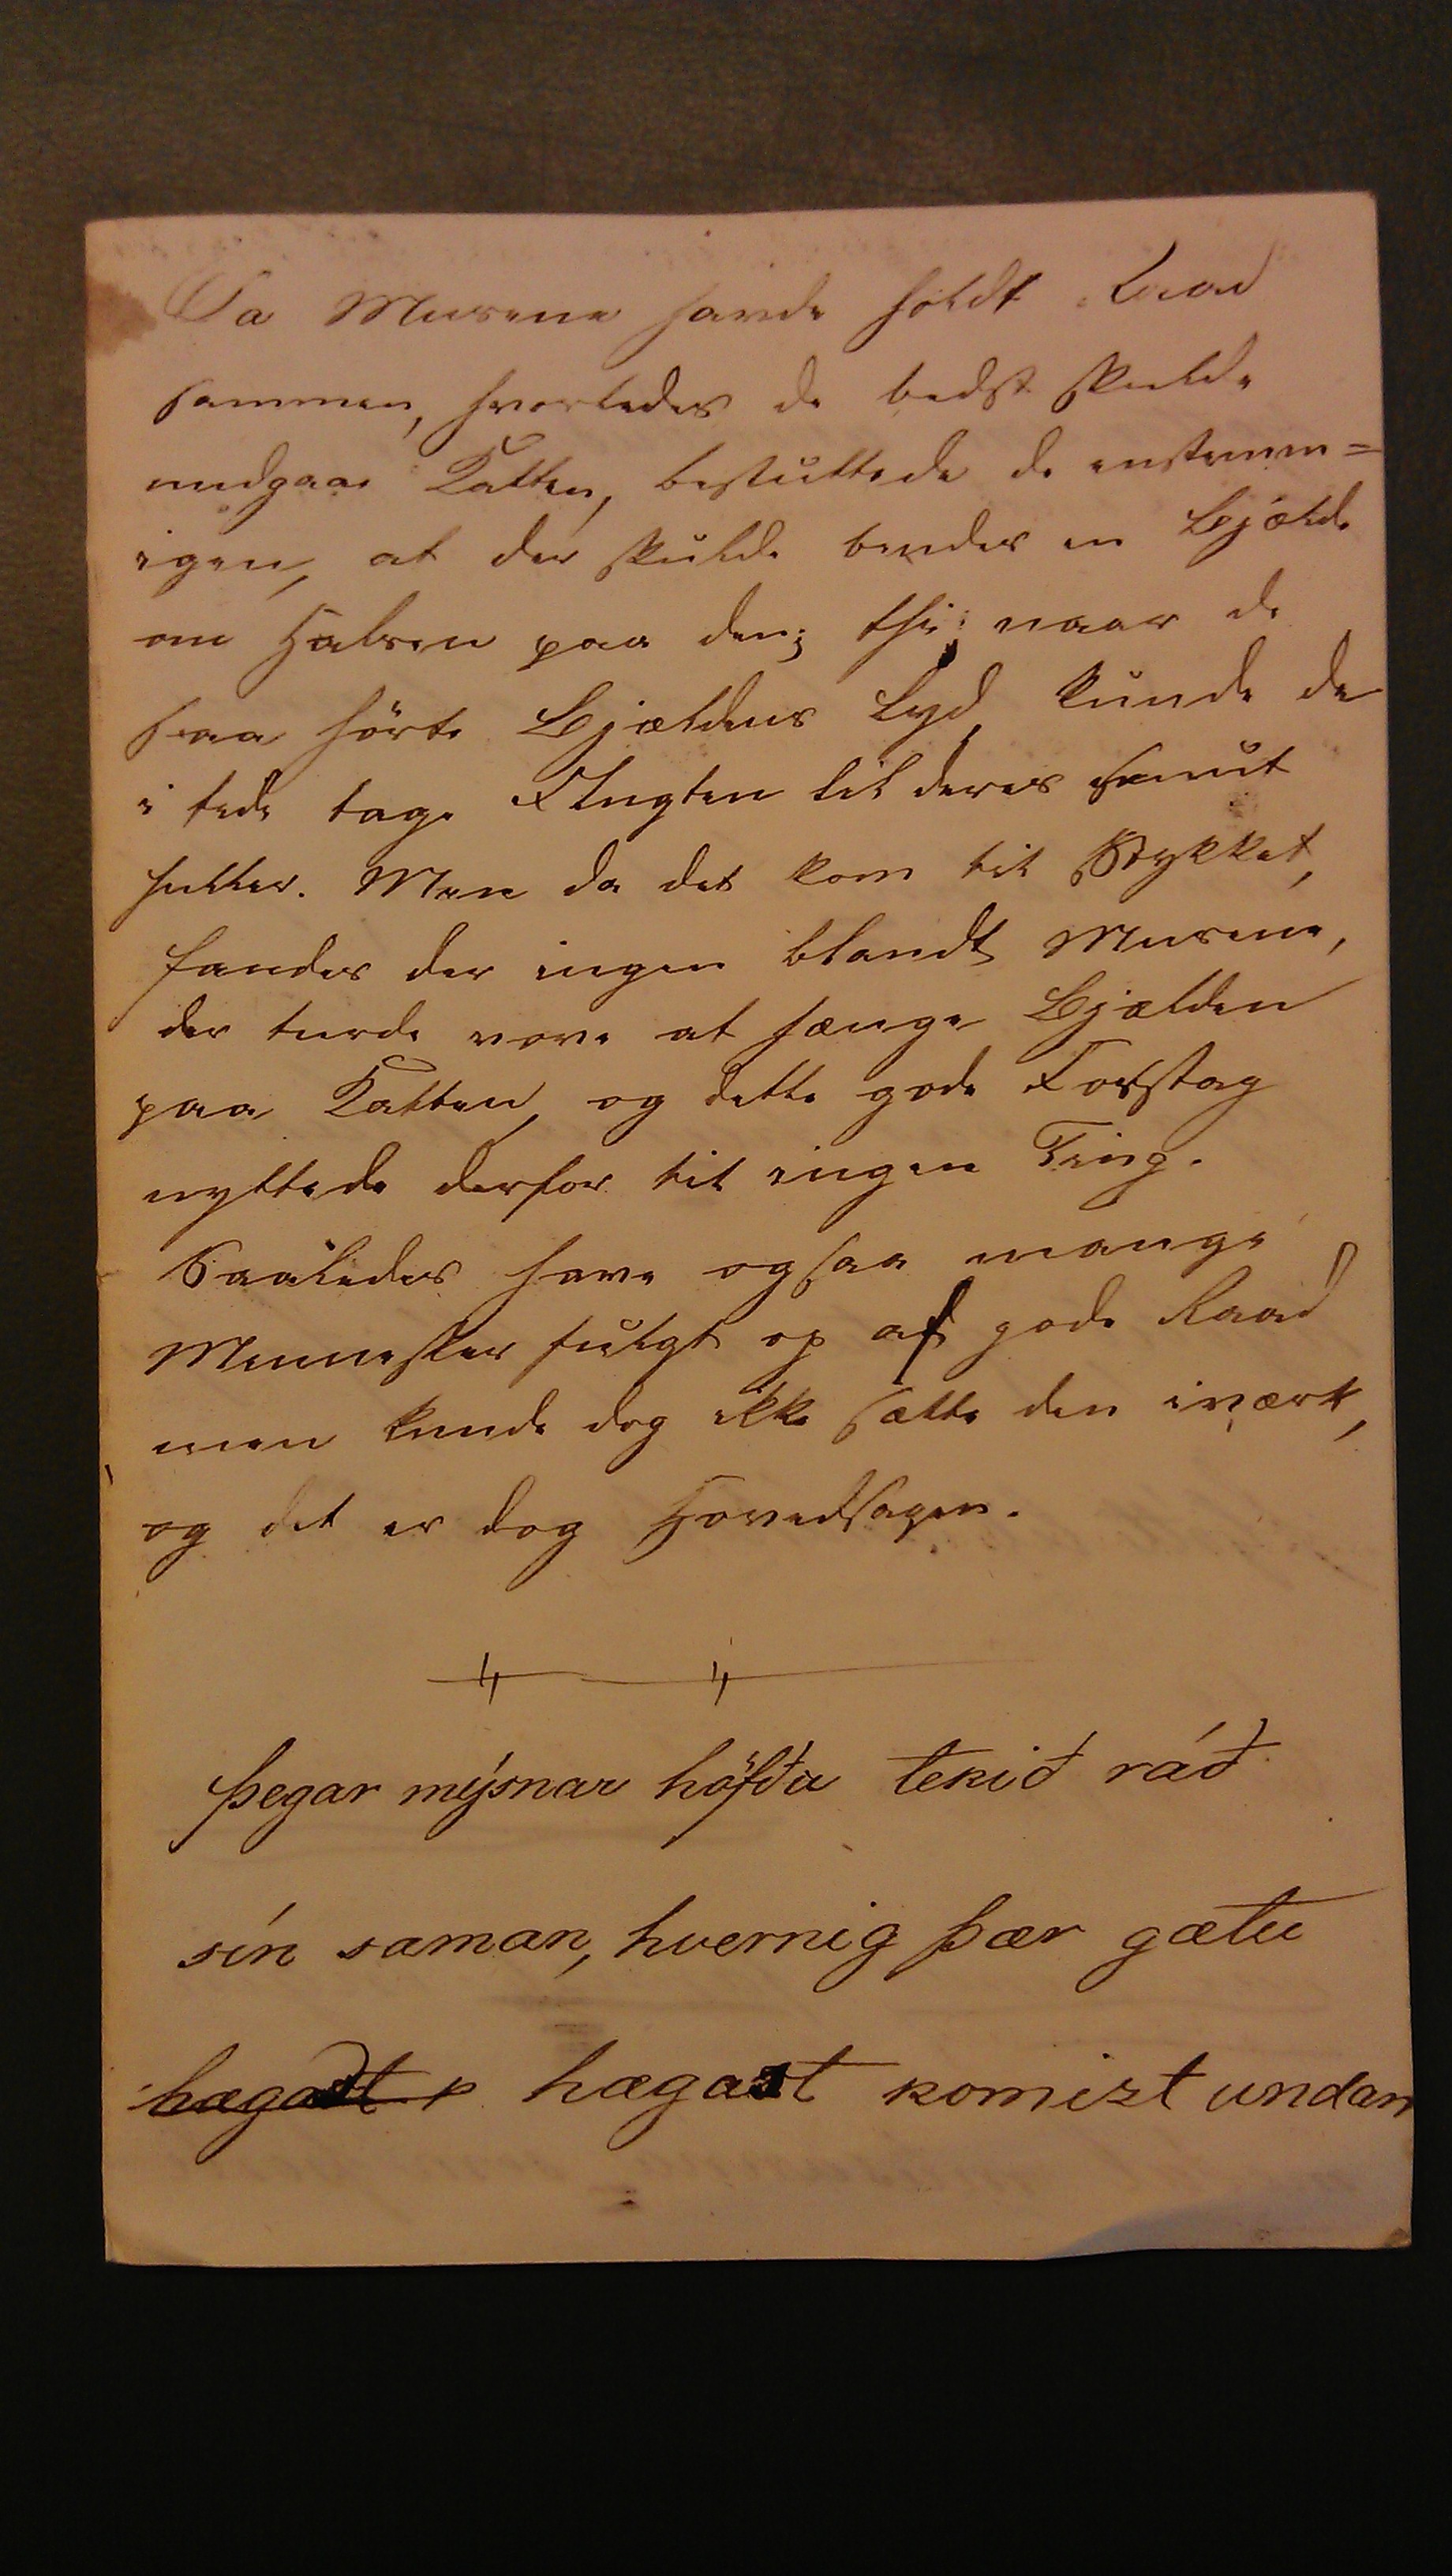 Da Musene havde holdt Raad
sammen, hvorledes de bedst skulde
undgaae Katten, besluttede de enstemm=
igen, at der skulde bindes en Bjælde
om Halsen paa den; thi naar de
saa hörte Bjældens Lyd, kunde de
i tide tage Flugten til deres smut
huller. Men da det kom til Stykket,
fandes der ingen blandt Musene,
der turde vove at hænge Bjælden
paa Katten, og dette gode Forslag
nyttede derfor til ingen Ting.
Saaledes have ogsaa mange
Mennesker fulgt op af gode Raad
men kunde dog ikke sætte den iværk,
og det er dog Hovedsagen.
Þegar mýsnar höfða tekið ráð
sín saman, hvernig þær gætu
hægast k hægast komizt undan